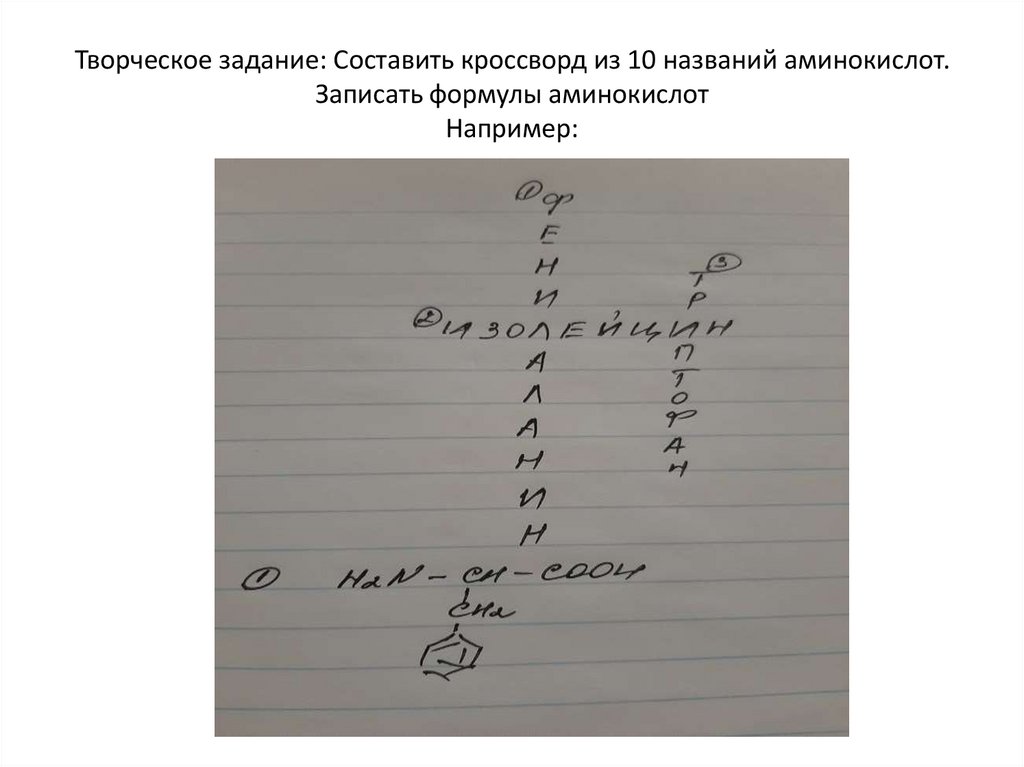 Творческое задание: Составить кроссворд из 10 названий аминокислот.
Записать формулы аминокислот
Например:
① Ф
Е
Н
И
② ИЗОЛЕЙЦИН
А
Л
А
Н
И
Н
③
Т
Р
П
Т
О
Ф
А
Н
① H2N – CH – COOH
CH2